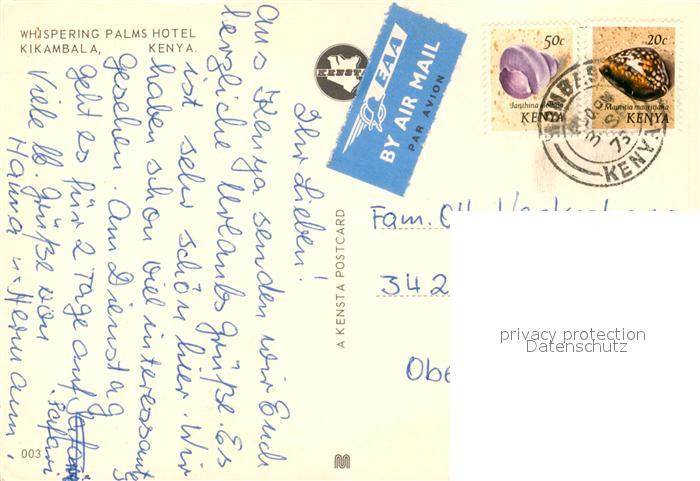 WHISPERING PALMS HOTEL
KIKAMBALA, KENYA.
Ihr Lieben!
Aus Kenya senden wir Euch
herzliche Urlaubsgrüße. Es
ist sehr schön hier. Wir
haben schon viel interessantes
gesehen. Am Dienstag
geht es für 2 Tage auf
Safari.
Viele lb. Grüße von
Hanna u. Hermann.
003
A KENSTA POSTCARD
KENSTA
EAA
BY AIR MAIL
PAR AVION
50c
Janthina
KENYA
20c
Mauritia
KENYA
75
KENYA
Fam.
342
Obe
privacy protection
Datenschutz